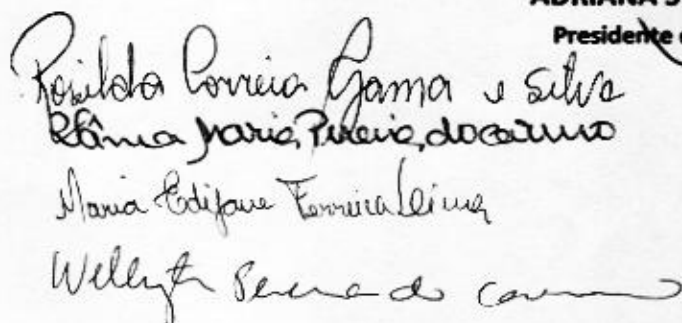 ADRIANA S
Presidente
Rosilda Correia Gama e Silva
Maria Pereira do carmo
Maria Edijane Ferreira Lima
Pereira do Carmo